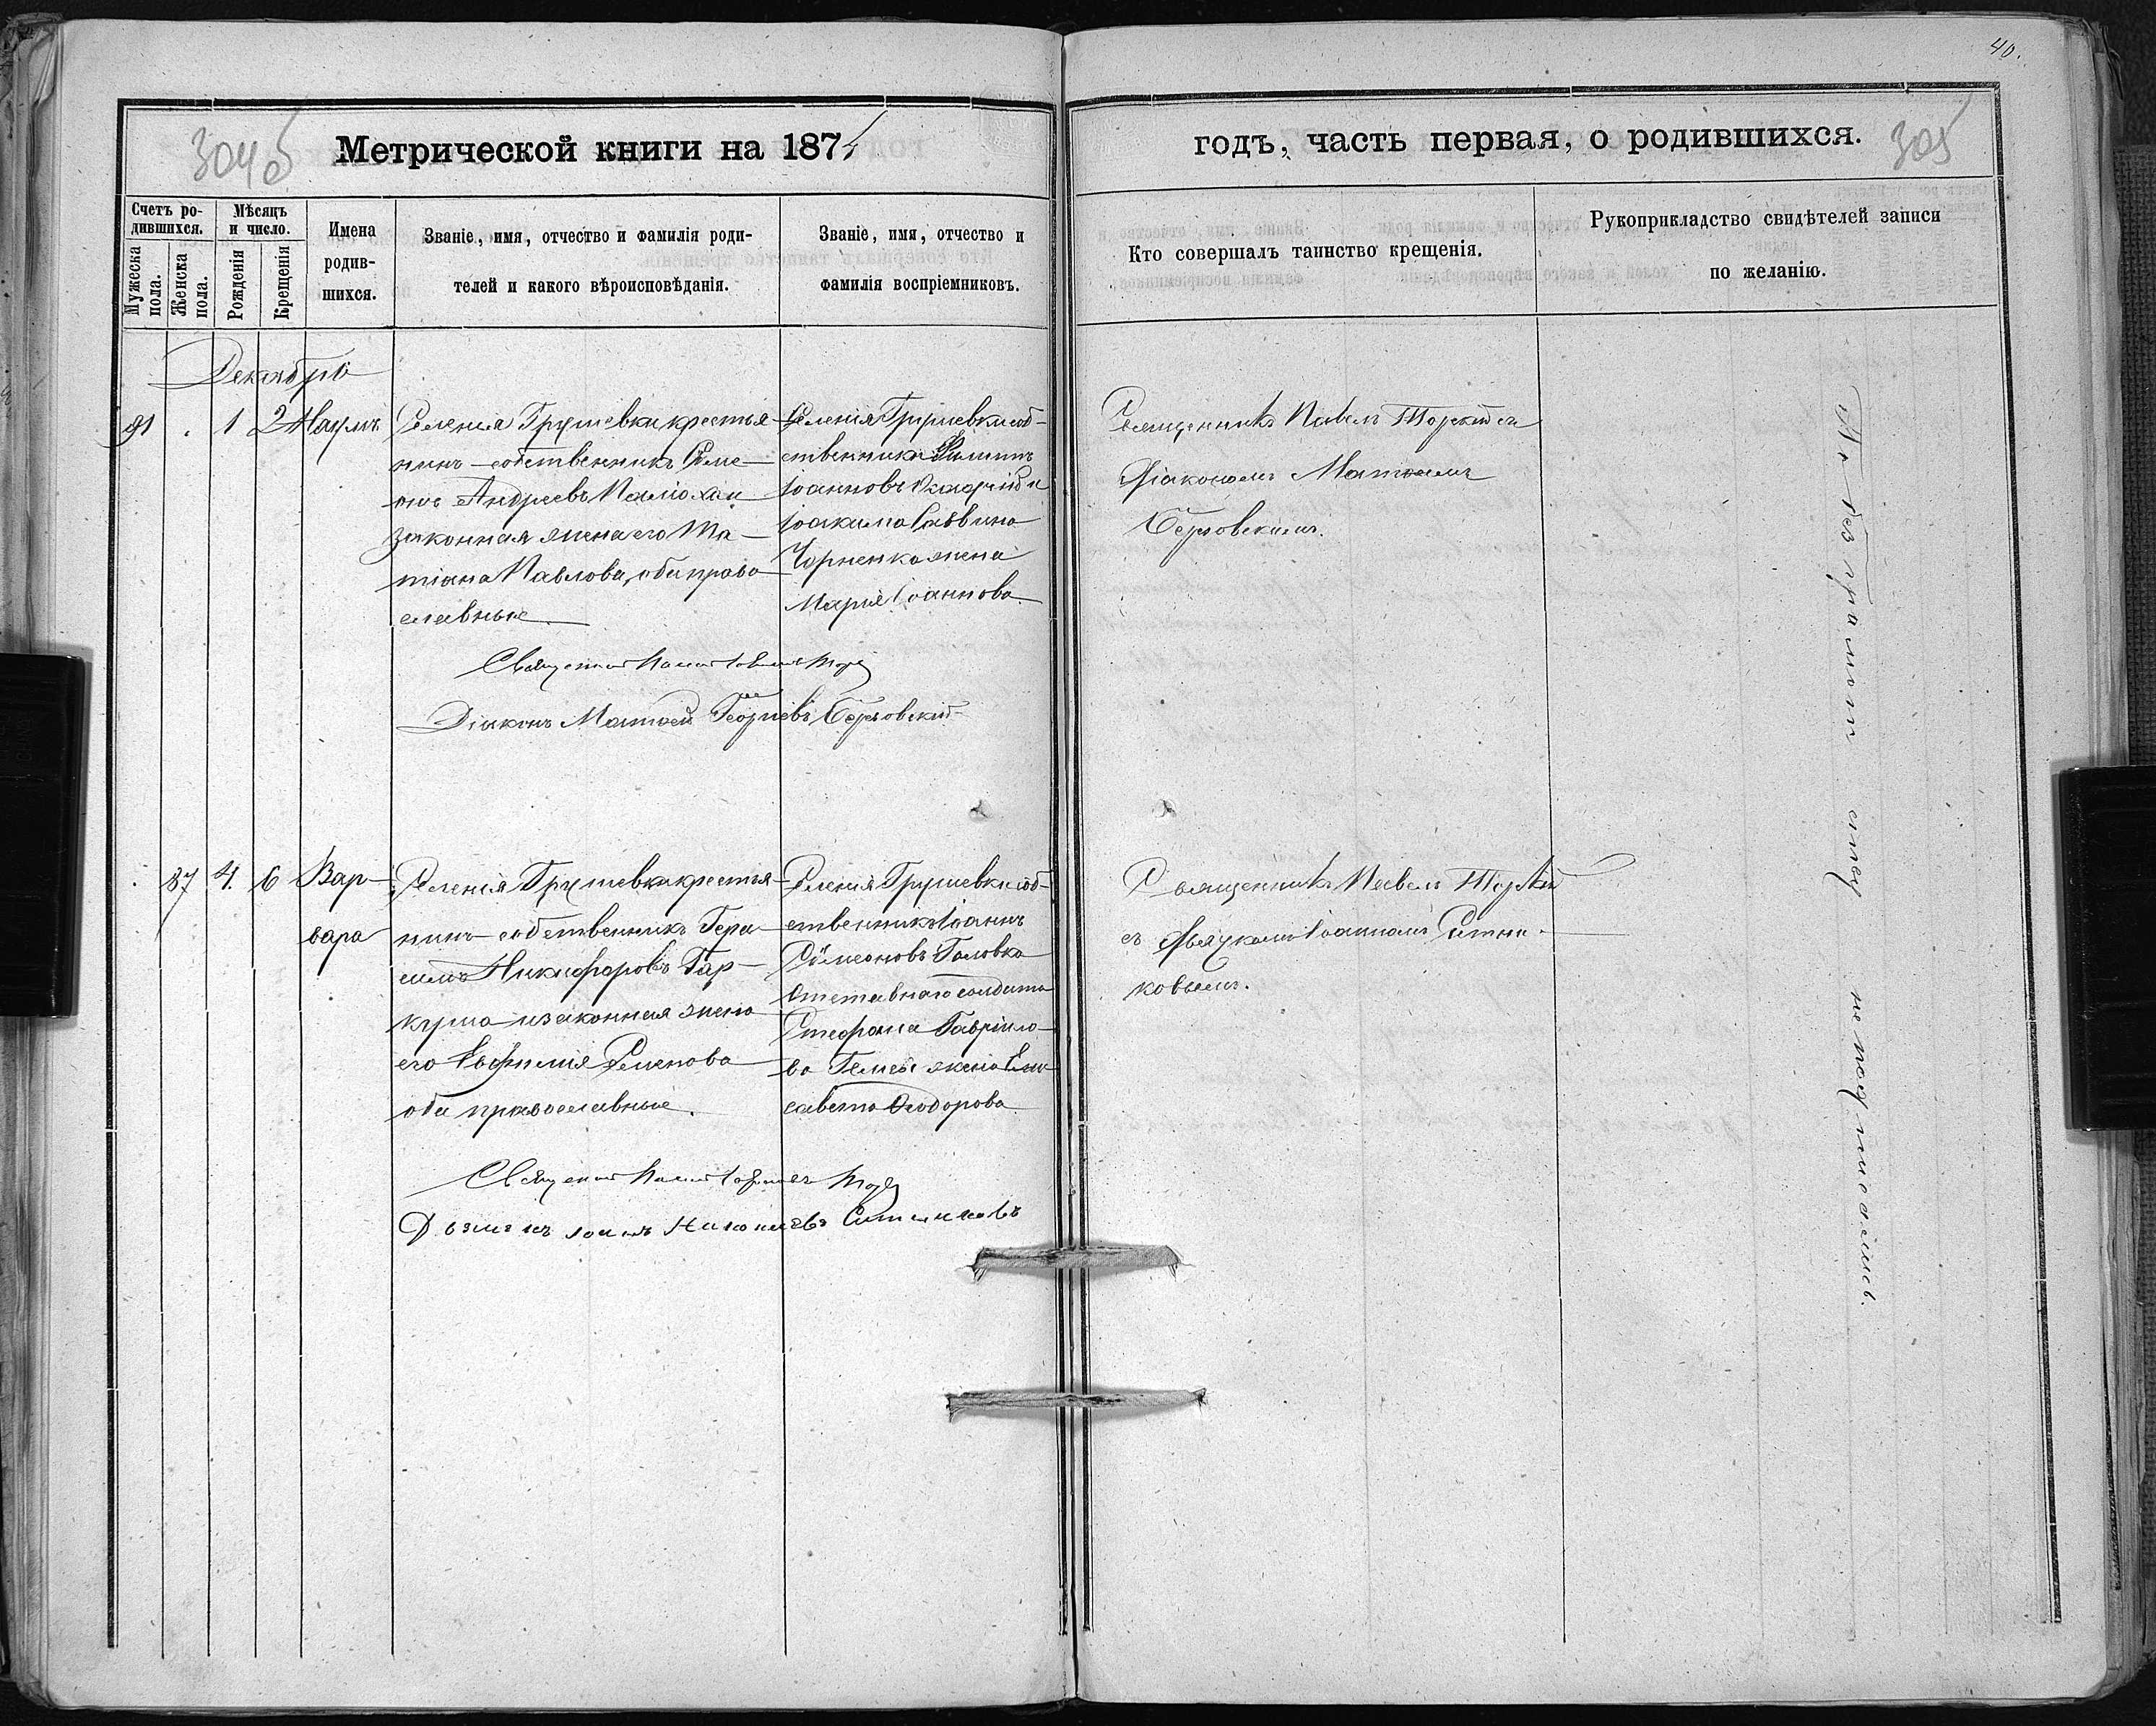 40.
304об
Метрической книги на 1874
годъ, часть первая, о родившихся.
305
Счетъ ро-
дившихся.
Мужеска пола.
Женска пола.
Мѣсяцъ
и число.
Рожденія
Крещенія
Имена
родив-
шихся.
Званіе, имя, отчество и фамилія роди-
телей и какого вѣроисповѣданія.
Званіе, имя, отчество и
фамилія воспріемниковъ.
Кто совершалъ таинство крещенія.
Рукоприкладство свидѣтелей записи
по желанію.
Декабрь
91 . 1 2 Наумъ
Селенія Грушевки крестья-
нинъ-собственникъ Симе-
онъ Андреевъ
законная жена его Та-
тіана Павлова, оба право
славные
Селенія Грушевки соб-
ственникъ
Іоанновъ и
Іоакима Саввина
Чорненка жена
Марія Іоаннова
Священникъ Павелъ Торскій съ
Діакономъ Матѳеемъ
Священникъ
Діаконъ Матѳей Георгіевъ
. 87 4. 6 Вар-
вара
Селенія Грушевки крестья-
нинъ-собственникъ Гера-
симъ Никифоровъ Гар-
куша и законная жена
его Евфимія Семенова
оба православные.
Селенія Грушевки соб-
ственникъ Іоаннъ
Симеоновъ Головко
Отставнаго солдата
Стефана Гавріило-
ва жена Ели-
савета Ѳеодорова
Священникъ Павелъ Торскій
съ Дьячкомъ Іоанномъ Ситни-
ковымъ.
Священникъ
Дьячекъ Іоаннъ Ситниковъ
По безграмотству не подписались.